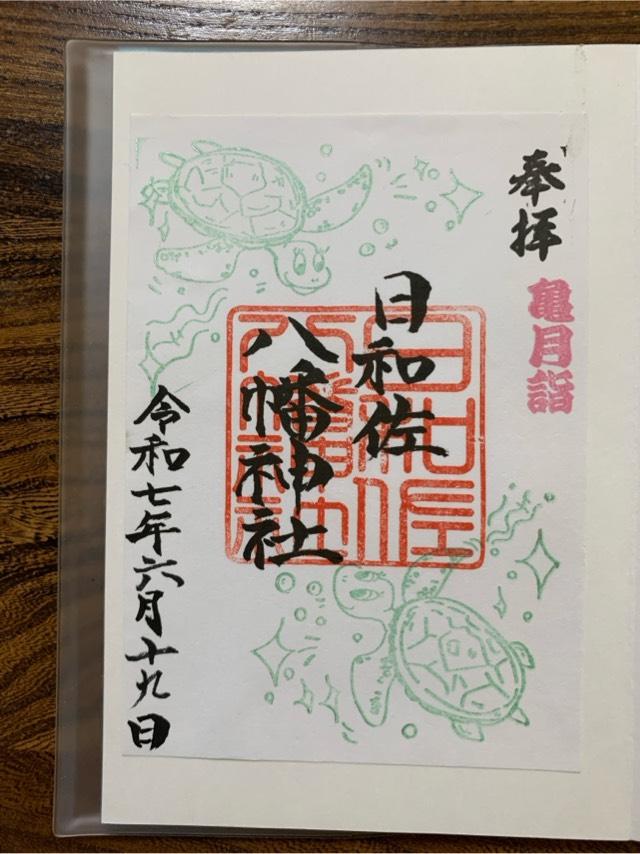 奉拝
亀月詣
日和佐
八幡神社
日和佐
八幡神社
令和七年六月十九日